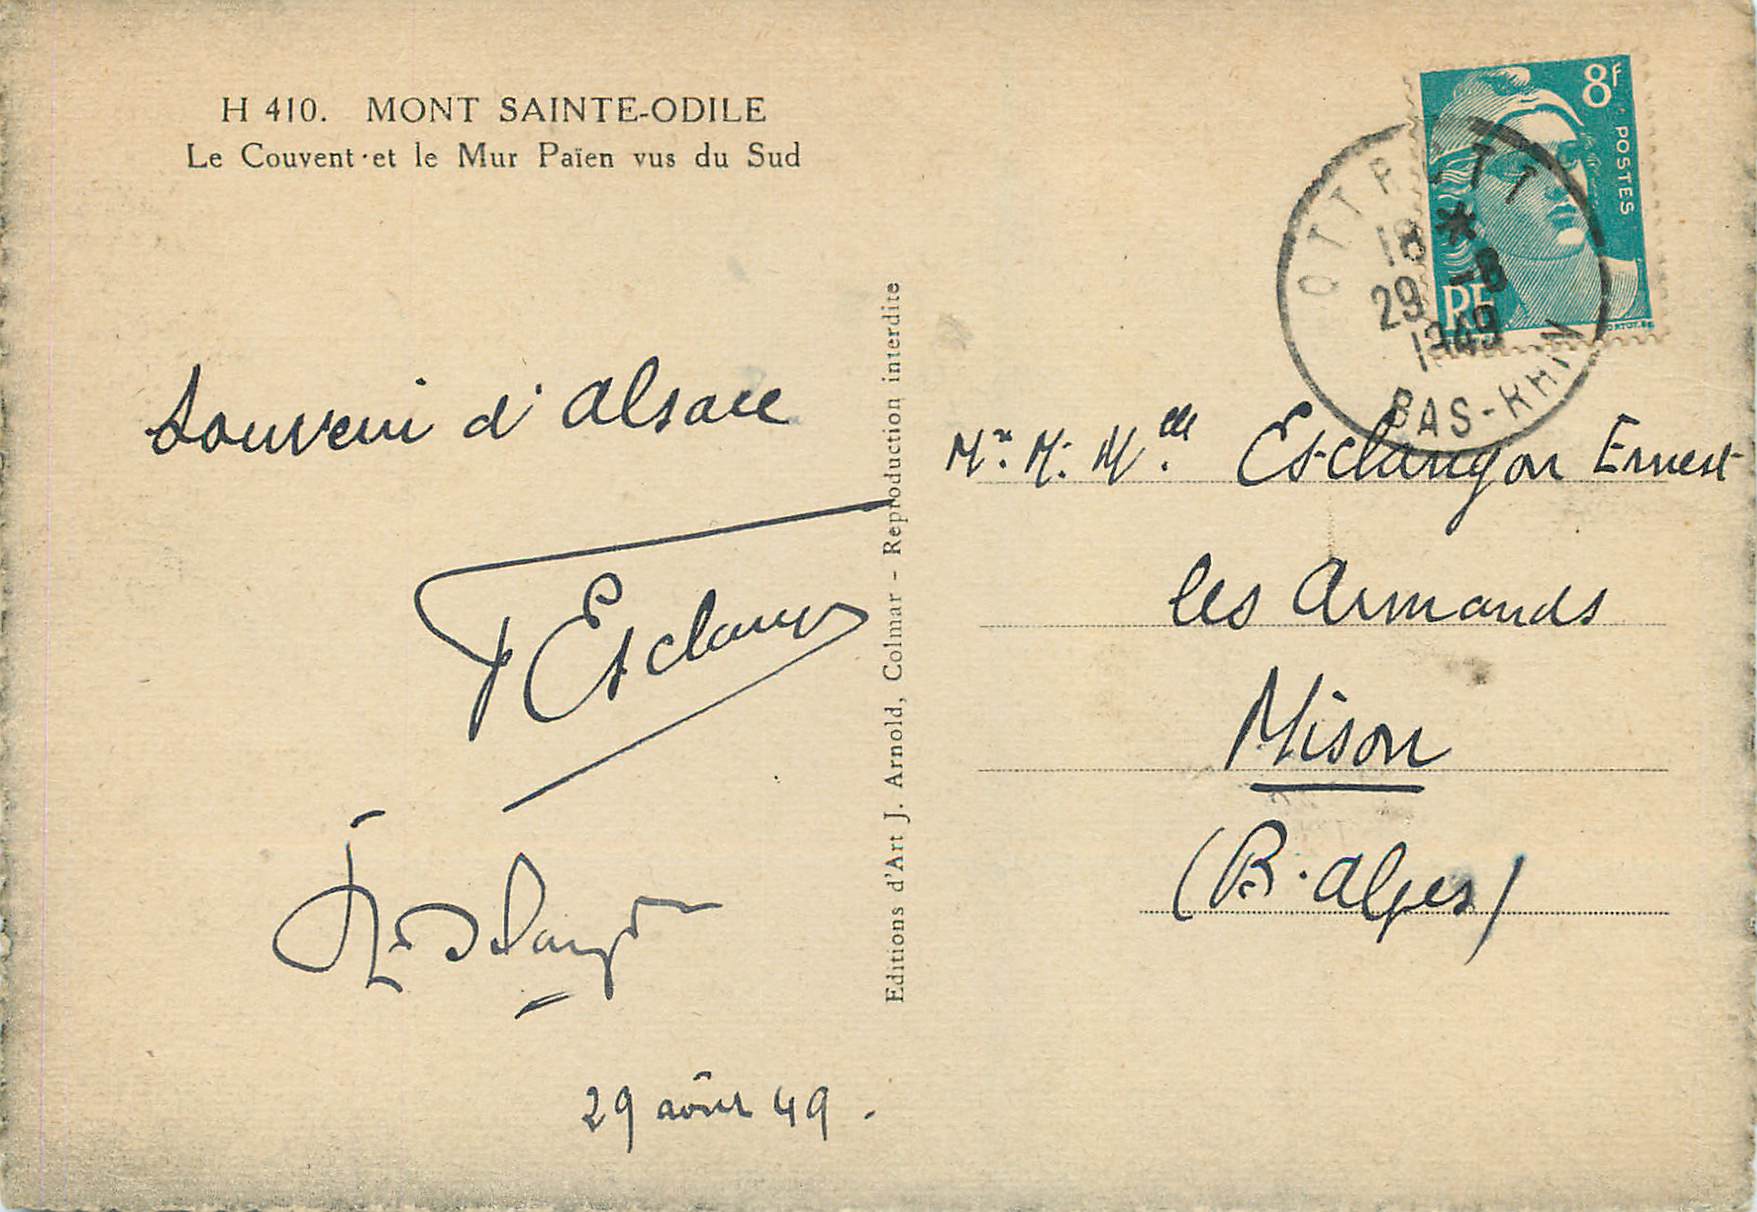 H 410. MONT SAINTE-ODILE
Le Couvent et le Mur Païen vus du Sud
Souvenir d'Alsace
Esclang
29 août 49.
Editions d'Art J. Arnold, Colmar - Reproduction interdite
8f
POSTES
RF
OTTROTT
18 *
29 -8
1949
BAS-RHIN
Mr. M. Melle Esclangon Ernest
les Armands
Mison
(B. Alpes)